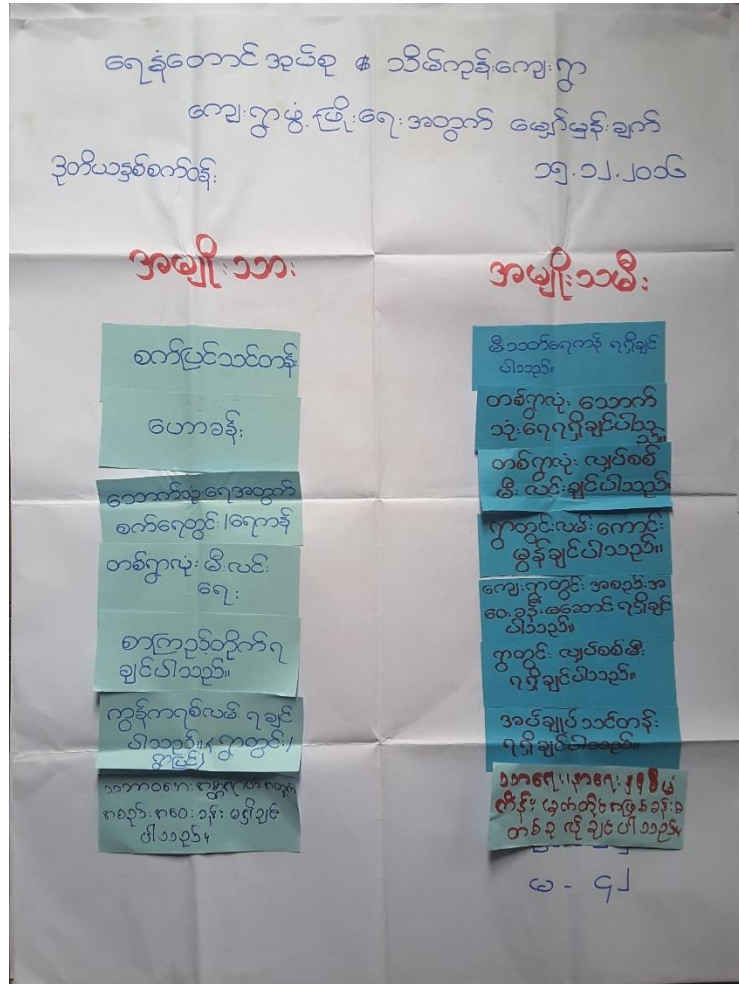 ရေနံတောင်အုပ်စု ၊ သိမ်ကုန်းကျေးရွာ
ကျေးရွာဖွံ့ဖြိုးရေးအတွက် မျှော်မှန်းချက်
ဒုတိယနှစ်စက်ဝန်း
၁၅.၁၂.၂၀၁၆
အမျိုးသား
စက်ပြင်သင်တန်း
ဟောခန်း
သောက်သုံးရေအတွက်
စက်ရေတွင်း/ရေကန်
တစ်ရွာလုံး မီးလင်း
ရေး
စာကြည့်တိုက်ရ
ချင်ပါသည်။
ကွန်ကရစ်လမ်း ရချင်
ပါသည်။ (ရွာတွင်း/
ရွာပြင်)
အစည်းအဝေးခန်းမရှိချင်
ပါသည်။
အမျိုးသမီး
မီးသတ်ရေကန် ရရှိချင်
ပါသည်။
တစ်ရွာလုံး သောက်
သုံးရေရရှိချင်ပါသည်
တစ်ရွာလုံး လျှပ်စစ်
မီး လင်းချင်ပါသည်။
ရွာတွင်းလမ်းကောင်း
မွန်ချင်ပါသည်။
ကျေးရွာတွင်း အစည်းအ
ဝေးခန်းမဆောင် ရရှိချင်
ပါသည်။
ရွာတွင်း လျှပ်စစ်မီး
ရရှိချင်ပါသည်။
အပ်ချုပ်သင်တန်း
ရရှိချင်ပါသည်။
သာရေး၊နာရေးနှင့်စီမံ
ကိန်း
တစ်ခု လိုချင်ပါသည်။
မ - ၄၂